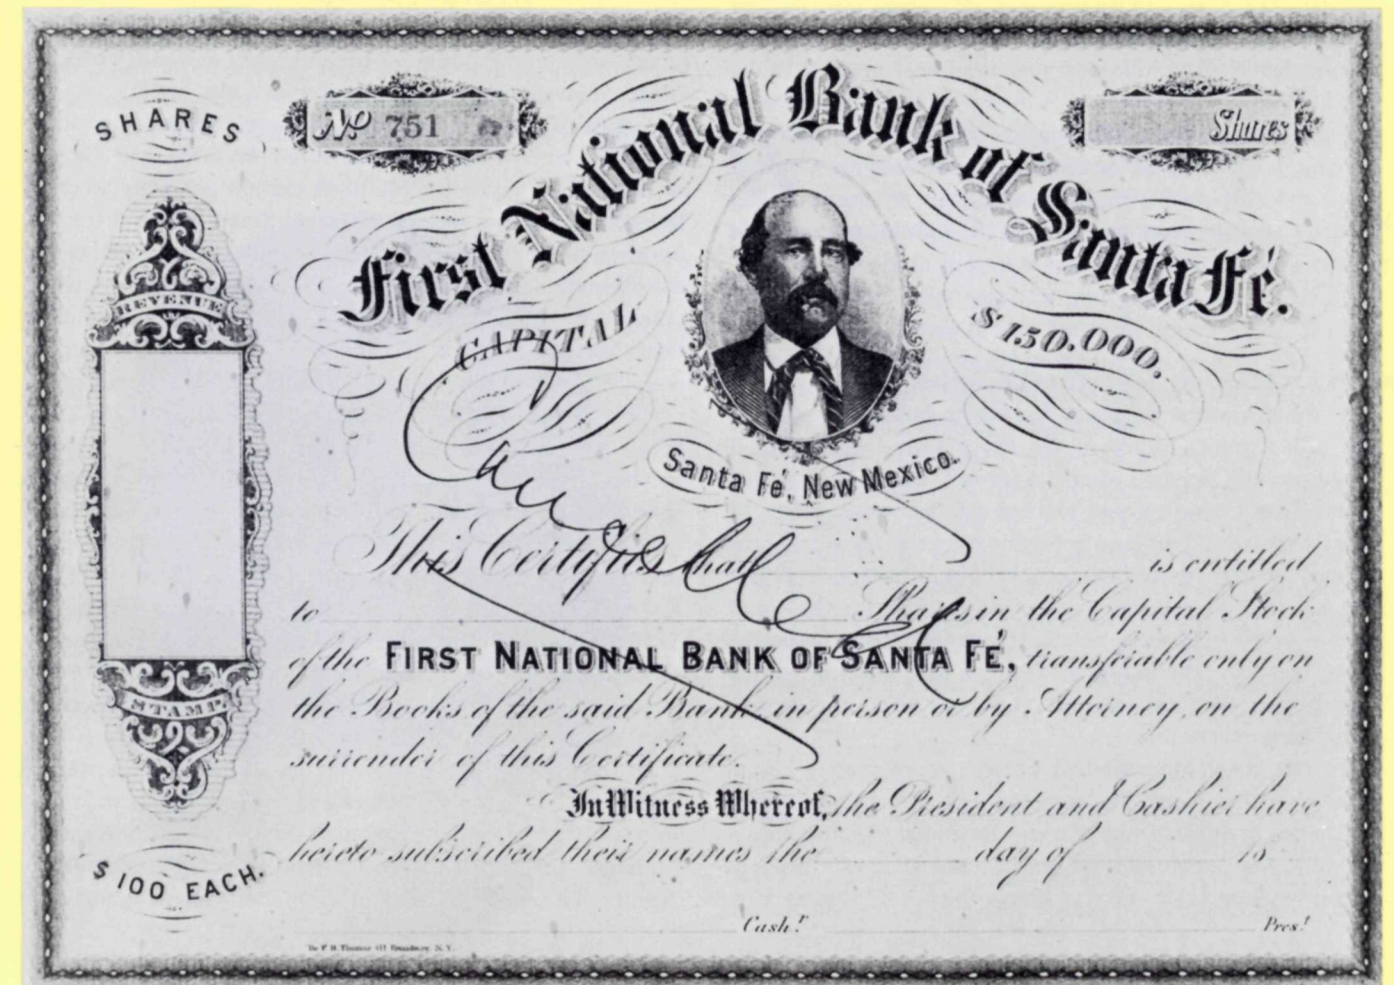 SHARES
No 751
Shares
First National Bank of Santa Fé.
CAPITAL
$150.000.
REVENUE
Santa Fé, New Mexico.
Cancelled
This Certifies that is entitled
to Shares in the Capital Stock
of the FIRST NATIONAL BANK OF SANTA FÉ, transferable only on
the Books of the said Bank in person or by Attorney on the
surrender of this Certificate.
STAMP.
In Witness Whereof, the President and Cashier have
hereto subscribed their names the day of 18
$100 EACH.
Cashr
Prest
Broadway, N.Y.